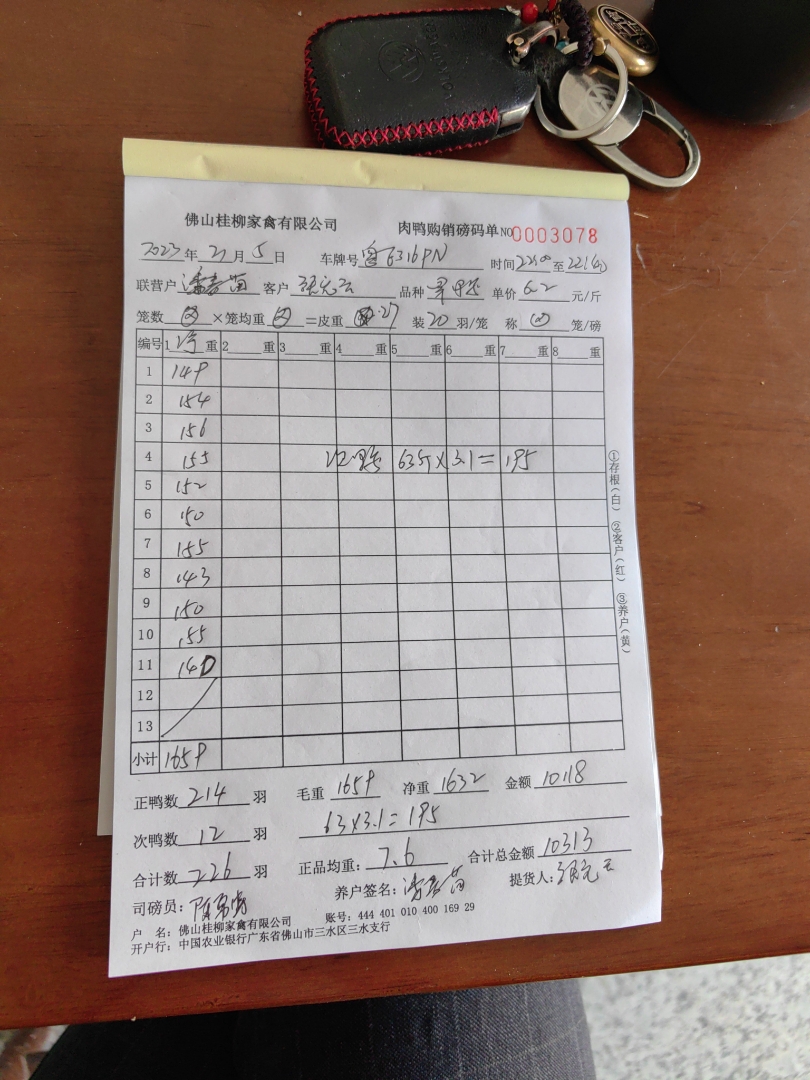 佛山桂柳家禽有限公司 肉鸭购销磅码单 NO 0003078
2023 年 21 月 5 日 车牌号 6316PN 时间 22:00 至 22:40
联营户 客户 品种 单价 6.2 元/斤
笼数 ×笼均重 =皮重 27 装 20 羽/笼 称 笼/磅
编号 1 重 2 重 3 重 4 重 5 重 6 重 7 重 8 重
1 149
2 154
3 156
4 155 63斤×3.1=195
5 152
6 150
7 155
8 143
9 150
10 155
11 140
12
13
小计 1659
正鸭数 214 羽 毛重 1659 净重 1632 金额 10118
次鸭数 12 羽 63×3.1=195
合计数 226 羽 正品均重: 7.6 合计总金额 10313
司磅员: 养户签名: 提货人:
户 名: 佛山桂柳家禽有限公司 账号: 444 401 010 400 169 29
开户行: 中国农业银行广东省佛山市三水区三水支行
①存根(白) ②客户(红) ③养户(黄)